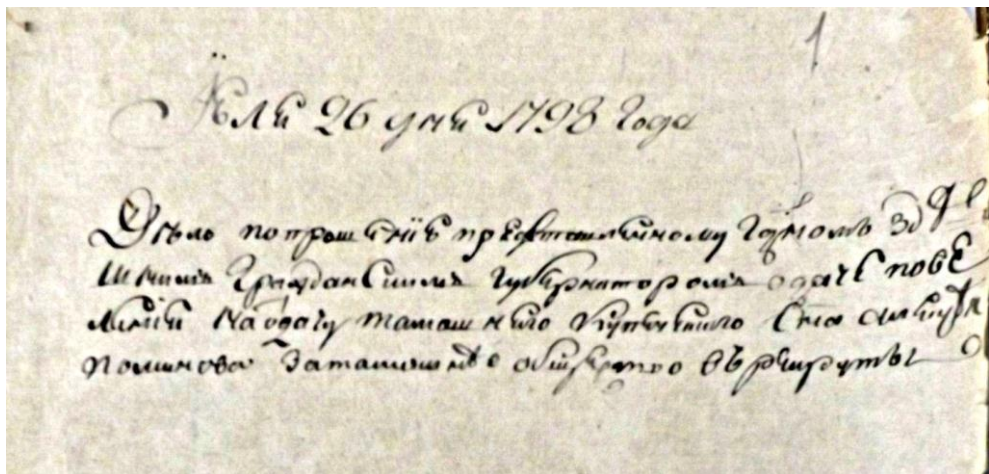 1
Июля 26 дня 1798 года
Дѣло по прошенїю представленному Г[осподино]мъ Зде
шнимъ Гражданскимъ Губернаторомъ о даче пове
ленїи на отдачу тамошняго купеческаго сна
за тамошнее общество въ рекруты